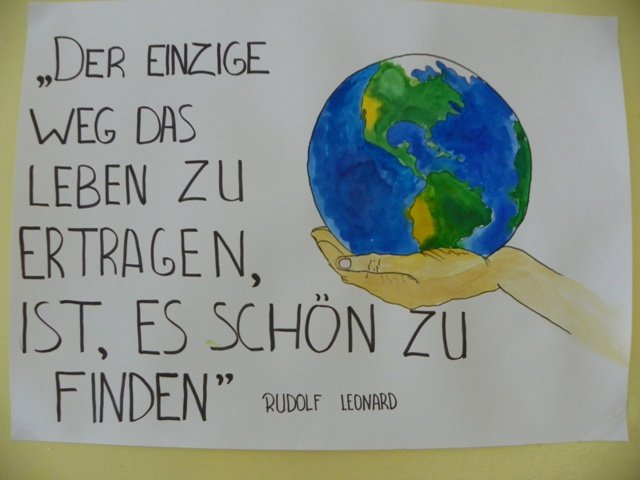 „DER EINZIGE
WEG DAS
LEBEN ZU
ERTRAGEN,
IST, ES SCHÖN ZU
FINDEN”
RUDOLF LEONARD